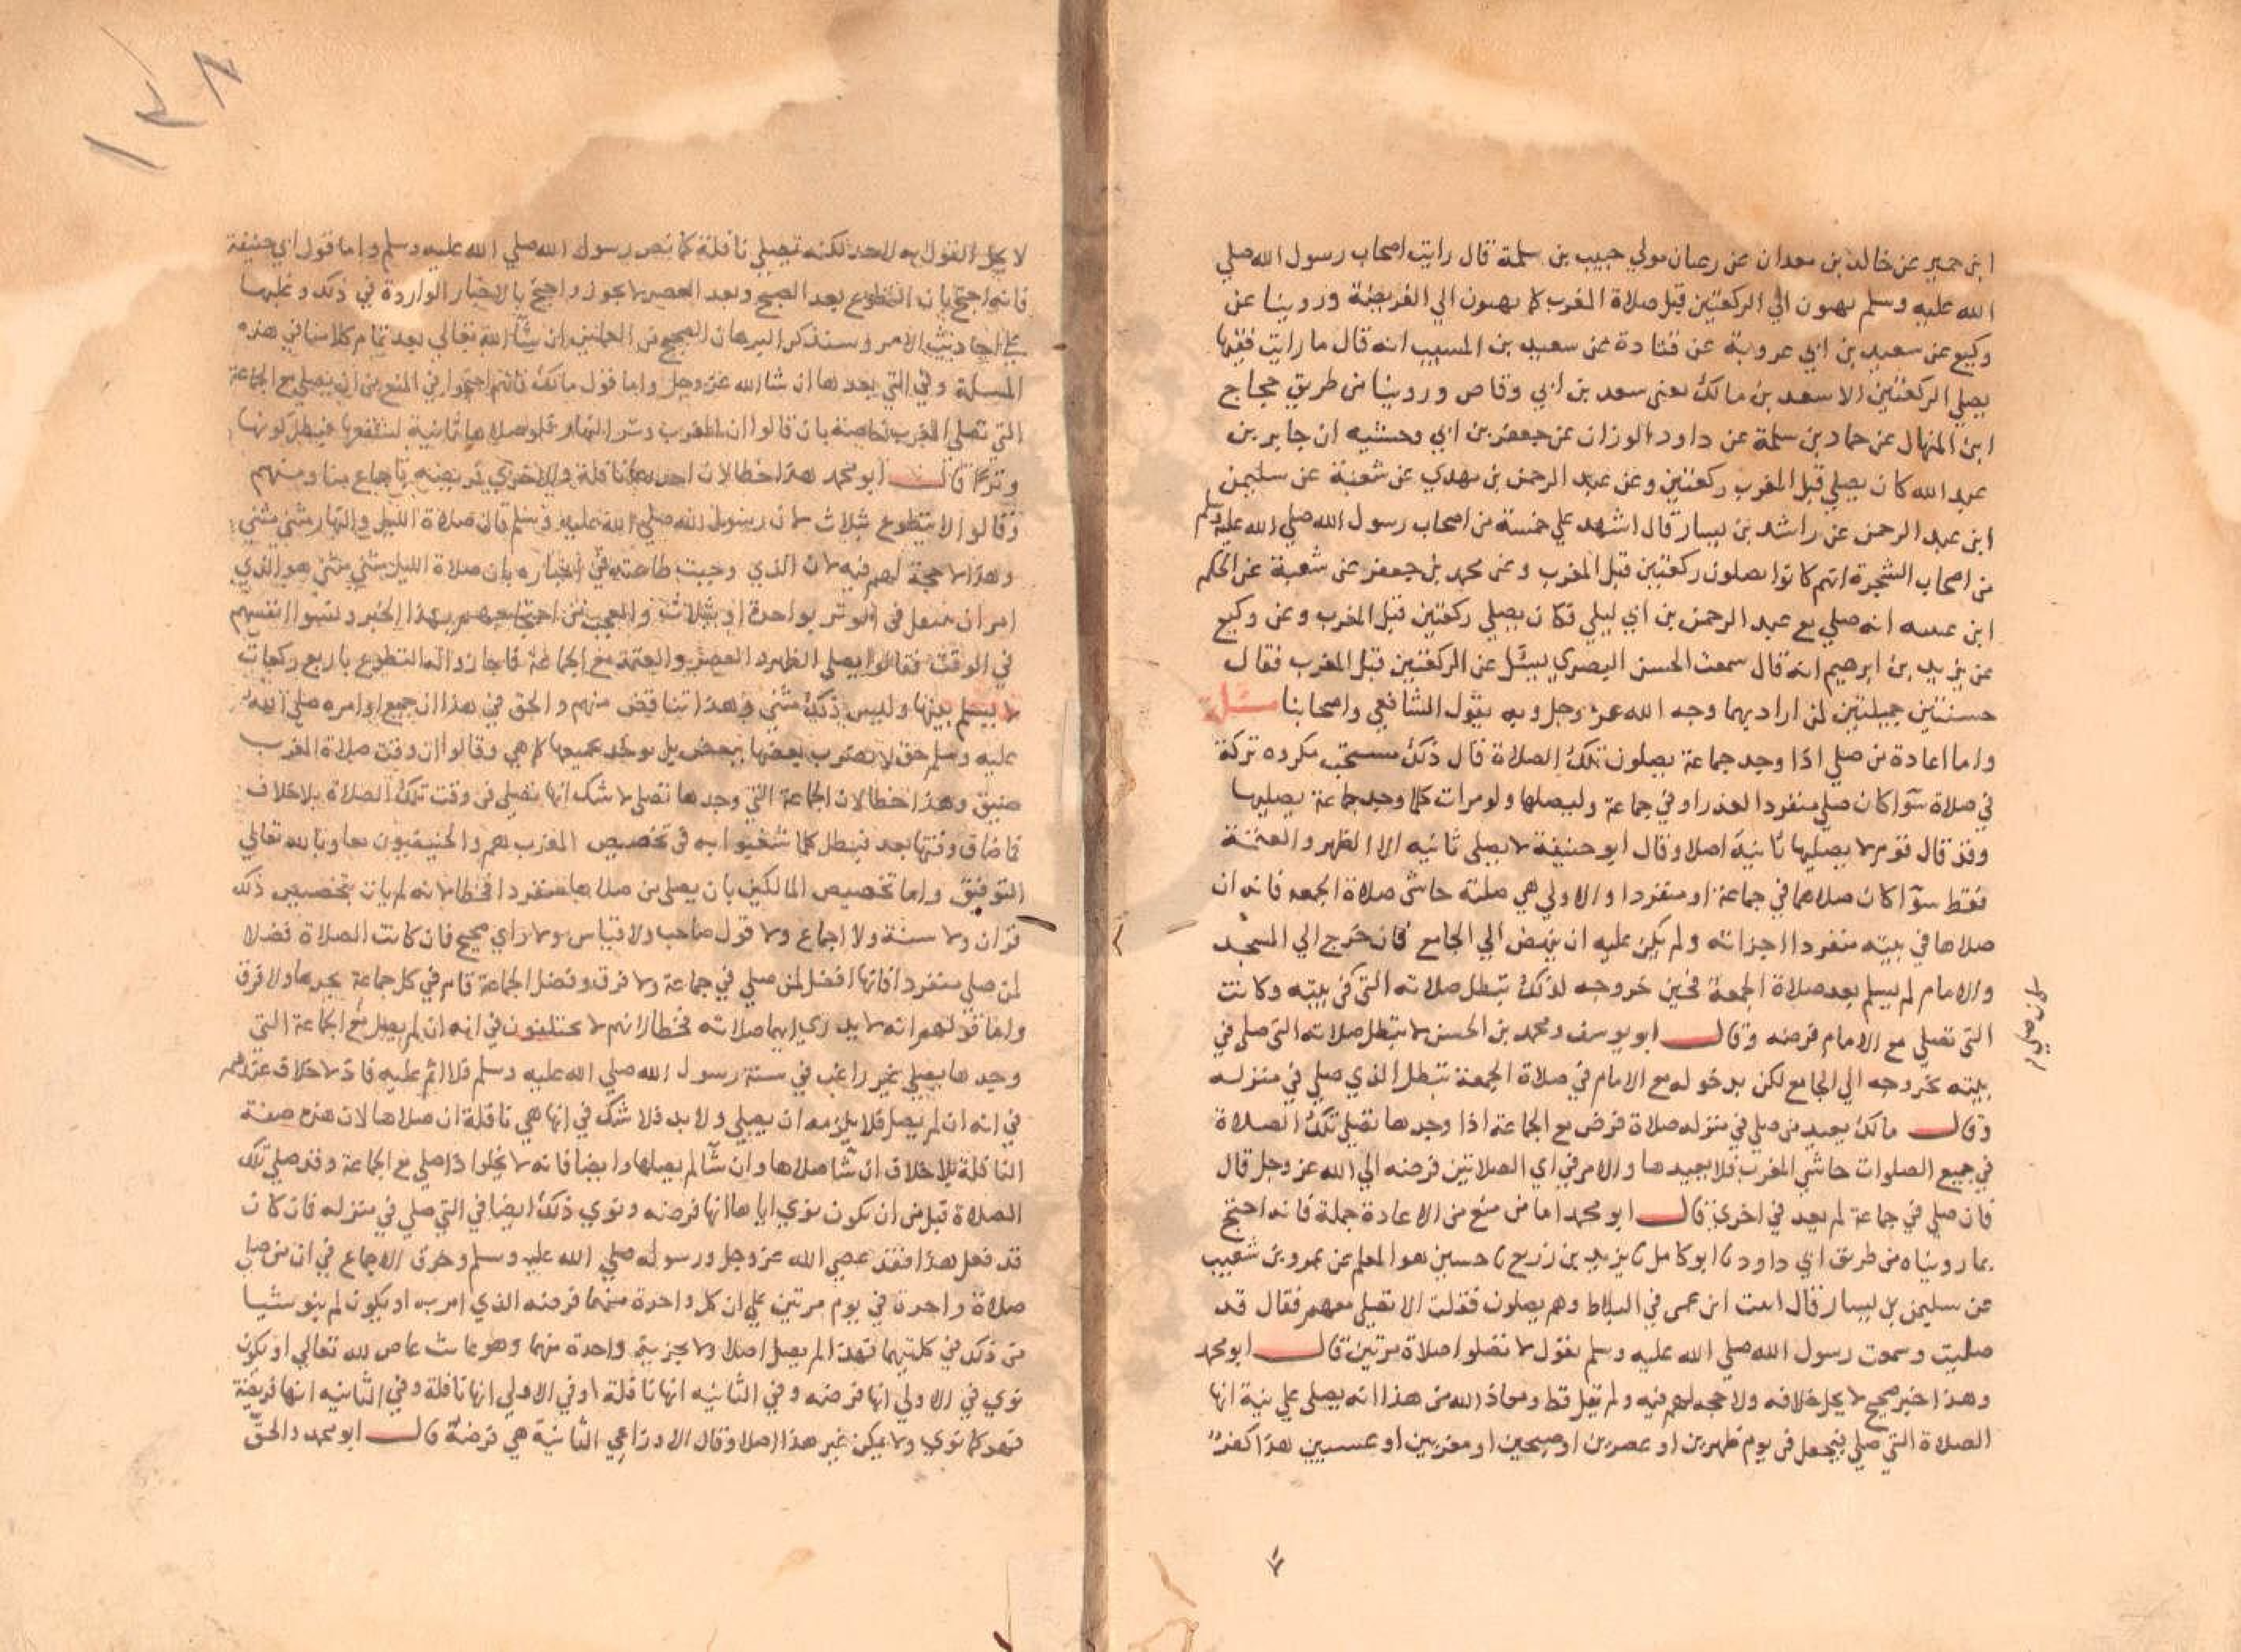 ابن خمير عن خالد بن معدان عن رعبان مولي حبيب بن سلمة قال رايت اصحاب رسول الله صلي
الله عليه وسلم يهبون الي الركعتين قبل صلاة المغرب كما يهبون الي الفريضة وروينا عن
وكيع عن سعيد بن ابي عروبة عن قتادة عن سعيد بن المسيب انه قال ما رايت فقيها
يصلي الركعتين الا سعد بن مالك يعني سعد بن ابي وقاص وروينا من طريق حجاج
ابن المنهال عن حماد بن سلمة عن داود الوزان عن جعفر بن ابي وحشيه ان جابر بن
عبد الله كان يصلي قبل المغرب ركعتين وعن عبد الرحمن بن مهدي عن شعبة عن سليمن
ابن عبد الرحمن عن راشد بن يسار قال اشهد علي خمسة من اصحاب رسول الله صلي الله عليه وسلم
من اصحاب الشجرة انهم كانوا يصلون ركعتين قبل المغرب وعن محمد بن جعفر عن شعبة عن الحكم
ابن عيينه انه صلي مع عبد الرحمن بن ابي ليلي فكان يصلي ركعتين قبل المغرب وعن وكيع
عن يزيد بن ابرهيم انه قال سمعت الحسن البصري يسئل عن الركعتين قبل المغرب فقال
حسنتين جميلتين لمن اراد بهما وجه الله عز وجل وبه يقول الشافعي واصحابنا مسئلة
واما اعادة من صلي اذا وجد جماعة يصلون تلك الصلاة قال ذلك مستحب مكروه تركه
في صلاة سوآ كان صلي منفردا لعذر او في جماعة وليصلها ولو مرات كلما وجد جماعة يصليها
وقد قال قوم لا يصليها ثانية اصلا وقال ابو حنيفة لا يصلي ثانيه الا الظهر والعتمة
فقط سوآ كان صلاهما في جماعة او منفردا والاولي هي صلاته حاشى صلاة الجمعه فانه ان
صلاها في بيته منفردا اجزاته ولم يكن عليه ان ينهض الي الجامع فان خرج الي المسجد
والامام لم يسلم بعد صلاة الجمعة فحين خروجه لذلك تبطل صلاته التي في بيته وكانت
التي تصلي مع الامام فرضه وقال ابو يوسف ومحمد بن الحسن لا تبطل صلاته التي صلي في
بيته بخروجه الي الجامع لكن بدخوله مع الامام في صلاة الجمعة تبطل الذي صلي في منزله
وقال مالك يعيد من صلي في منزله صلاة فرض مع الجماعة اذا وجدها تصلي تلك الصلاة
في جميع الصلوات حاشي المغرب فلا يعيدها والامر في اي الصلاتين فرضه الي الله عز وجل قال
فان صلي في جماعة لم يعد في اخري قال ابو محمد اما من منع من الاعادة جملة فانه احتج
بما رويناه من طريق ابي داود نا ابو كامل نا يزيد بن زريع نا حسين هو المعلم عن عمرو بن شعيب
عن سليمن بن يسار قال اتيت ابن عمر في البلاط وهم يصلون فقلت الا تصلي معهم فقال قد
صليت وسمعت رسول الله صلي الله عليه وسلم يقول لا تصلوا صلاة مرتين قال ابو محمد
وهذا خبر صحيح لا يحل خلافه ولا حجه لهم فيه ولم نقل قط ومعاذ الله من هذا انه يصلي علي نية انها
الصلاة التي صلي فيجعل في يوم ظهرين او عصرين او صبحين او مغربين او عتمتين هذا كفر
لا يحل القول به لاحد لكنه تصلي نافلة كما نص رسول الله صلي الله عليه وسلم واما قول ابي حنيفة
فانه احتج بان التطوع بعد الصبح وبعد العصر لا يجوز واحتج بالاخبار الواردة في ذلك وغلبها
علي احاديث الامر وسنذكر البرهان الصحيح من العملين ان شآ الله تعالي بعد تمام كلامنا في هذه
المسلة وفي التي بعدها ان شا الله عز وجل واما قول مالك فانهم احتجوا في المنع من ان يصلي مع الجماعة
التي تصلي المغرب خاصة بان قالوا ان المغرب وتر النهار فلو صلاها ثانية لشفعها فبطل كونها
وترا قال ابو محمد هذا خطا لان احدهما نافلة والاخري فريضه باجماع منا ومنهم
وقالوا لا يتطوع بثلاث لان رسول الله صلي الله عليه وسلم قال صلاة الليل والنهار مثني مثني
وهذا لا حجة لهم فيه لان الذي وجبت طاعته في اخباره بان صلاة الليل مثني مثني هو الذي
امر ان يتنفل في الوتر بواحدة او بثلاث والعجب من احتجاجهم بهذا الخبر ونسوا انفسهم
في الوقت فقالوا يصلي الظهر والعصر والعتمة مع الجماعة فاجازوا له التطوع باربع ركعات
لا يسلم بينها وليس ذلك مثني وهذا تناقض منهم والحق في هذا ان جميع اوامره صلي الله
عليه وسلم حق لا يضرب بعضها ببعض بل يوخذ جميعها كما هي وقالوا ان وقت صلاة المغرب
ضيق وهذا خطا لان الجماعة التي وجدها تصلي لا شك انها تصلي في وقت تلك الصلاة بلا خلاف
فما ضاق وقتها بعد فبطل كلما شغبوا به في تخصيص المغرب هم والحنيفيون معا وبالله تعالي
التوفيق واما تخصيص المالكين بان يصلي من صلاها منفردا فخطا لانه لم يات بتخصيص ذلك
قران ولا سنة ولا اجماع ولا قول صاحب ولا قياس ولا راي صحيح فان كانت الصلاة فضلا
لمن صلي منفردا فانها افضل لمن صلي في جماعة ولا فرق وفضل الجماعة قام في كل جماعة يجدها ولا فرق
واما قولهم انه لا يدري ايهما صلاته فخطا لانهم لا يختلفون في انه ان لم يصل مع الجماعة التي
وجدها يصلي غير راغب في سنة رسول الله صلي الله عليه وسلم فلا اثم عليه فاذ لا خلاف عندهم
في انه ان لم يصل فلا يلزمه ان يصلي ولا بد فلا شك في انها هي نافلة ان صلاها لان هذه صفة
النافلة بلا خلاف ان شآ صلاها وان شآ لم يصلها وايضا فانه لا يخلوا اذا صلي مع الجماعة وقد صلي تلك
الصلاة قبل من ان يكون نوي اياها انها فرضه ونوي ذلك ايضا في التي صلي في منزله فان كان
قد فعل هذا فقد عصي الله عز وجل ورسوله صلي الله عليه وسلم وخرق الاجماع في ان من صلي
صلاة واحدة في يوم مرتين علي ان كل واحدة منهما فرضه الذي امر به او يكون لم ينو شيا
من ذلك في كلتيهما فهذا لم يصل اصلا ولا يجزيه واحدة منهما وهو عابث عاص لله تعالي او يكون
نوي في الاولي انها فرضه وفي الثانيه انها نافلة او في الاولي انها نافلة وفي الثانيه انها فريضة
فهو كما نوي ولا يمكن غير هذا اصلا وقال الاوزاعي الثانية هي فرضة قال ابو محمد والحق
١٣٨